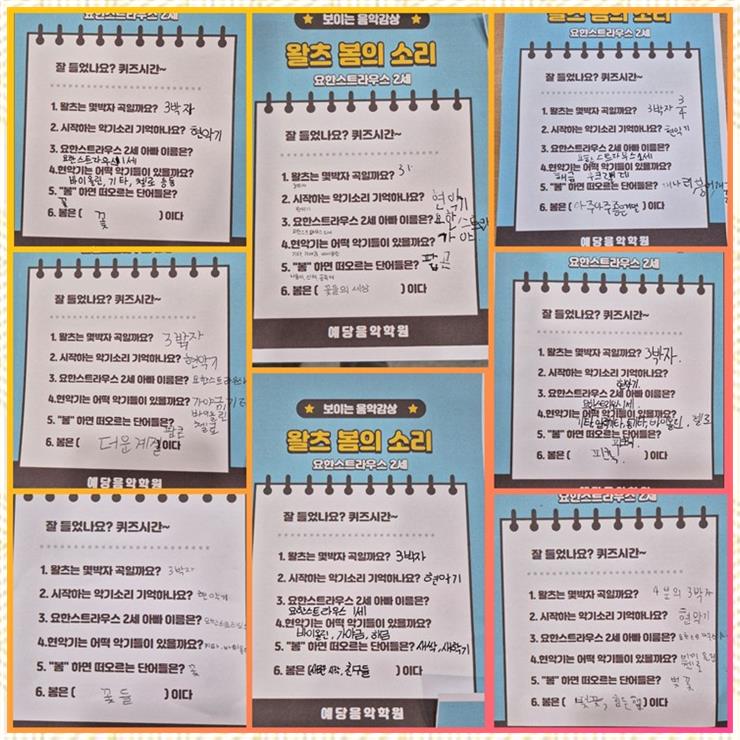 요한스트라우스 2세
잘 들었나요? 퀴즈시간~
1. 왈츠는 몇박자 곡일까요? 3박자
2. 시작하는 악기소리 기억하나요? 현악기
3. 요한스트라우스 2세 아빠 이름은?
요한스트라우스 1세
4.현악기는 어떡 악기들이 있을까요?
바이올린, 기타, 첼로 등등
5. "봄" 하면 떠오르는 단어들은?
꽃
6. 봄은 ( 꽃 ) 이다
잘 들었나요? 퀴즈시간~
1. 왈츠는 몇박자 곡일까요? 3박자
2. 시작하는 악기소리 기억하나요? 현악기
3. 요한스트라우스 2세 아빠 이름은?
4.현악기는 어떡 악기들이 있을까요? 가야금, 기타
바이올린
첼로
5. "봄" 하면 떠오르는 단어들은?
팝콘
6. 봄은 ( 더운계절 ) 이다
예당음악학원
잘 들었나요? 퀴즈시간~
1. 왈츠는 몇박자 곡일까요? 3박자
2. 시작하는 악기소리 기억하나요? 현악기
3. 요한스트라우스 2세 아빠 이름은?
4.현악기는 어떡 악기들이 있을까요?
5. "봄" 하면 떠오르는 단어들은? 꽃
6. 봄은 ( 꽃들 ) 이다
보이는 음악감상
왈츠 봄의 소리
요한스트라우스 2세
잘 들었나요? 퀴즈시간~
1. 왈츠는 몇박자 곡일까요?
2. 시작하는 악기소리 기억하나요? 현악기
3. 요한스트라우스 2세 아빠 이름은?
4.현악기는 어떡 악기들이 있을까요?
5. "봄" 하면 떠오르는 단어들은? 팝콘
6. 봄은 ( 꽃들의 세상 ) 이다
예당음악학원
보이는 음악감상
왈츠 봄의 소리
요한스트라우스 2세
잘 들었나요? 퀴즈시간~
1. 왈츠는 몇박자 곡일까요? 3박자
2. 시작하는 악기소리 기억하나요? 현악기
3. 요한스트라우스 2세 아빠 이름은?
요한스트라우스 1세
4.현악기는 어떡 악기들이 있을까요?
바이올린, 가야금, 해금
5. "봄" 하면 떠오르는 단어들은? 새싹, 새학기
6. 봄은 ( 친구들 ) 이다
예당음악학원
왈츠 봄의 소리
요한스트라우스 2세
잘 들었나요? 퀴즈시간~
1. 왈츠는 몇박자 곡일까요? 3박자 3/4
2. 시작하는 악기소리 기억하나요? 현악기
3. 요한스트라우스 2세 아빠 이름은?
요한 스트라우스 1세
4.현악기는 어떡 악기들이 있을까요?
해금 우크렐레
5. "봄" 하면 떠오르는 단어들은?
6. 봄은 ( ) 이다
예당음악학원
요한스트라우스 2세
잘 들었나요? 퀴즈시간~
1. 왈츠는 몇박자 곡일까요? 3박자.
2. 시작하는 악기소리 기억하나요?
현악기.
3. 요한스트라우스 2세 아빠 이름은?
4.현악기는 어떡 악기들이 있을까요?
5. "봄" 하면 떠오르는 단어들은?
6. 봄은 ( ) 이다
요한스트라우스 2세
잘 들었나요? 퀴즈시간~
1. 왈츠는 몇박자 곡일까요? 4분의 3박자
2. 시작하는 악기소리 기억하나요? 현악기
3. 요한스트라우스 2세 아빠 이름은?
4.현악기는 어떡 악기들이 있을까요? 바이올린
첼로
5. "봄" 하면 떠오르는 단어들은? 벚꽃
6. 봄은 ( 벚꽃, ) 이다
예당음악학원